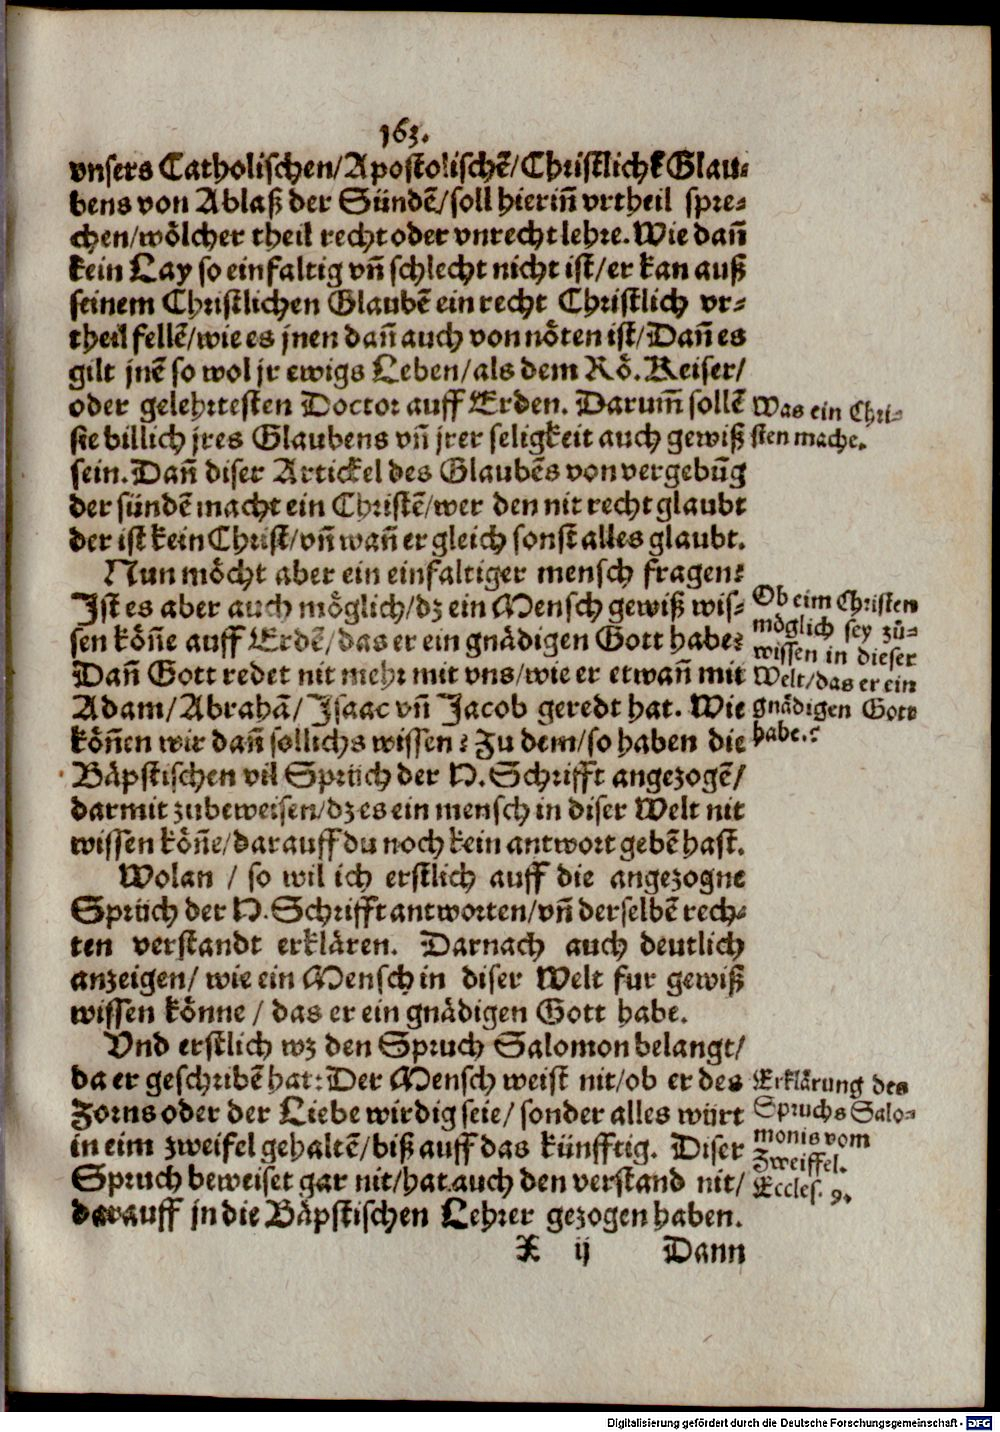 163.
vnsers Catholischen/Apostolischẽ/Christlichẽ Glau-
bens von Ablaß der Sündẽ/soll hierin̄ vrtheil spre-
chen/wölcher theil recht oder vnrecht lehre. Wie dan̄
kein Lay so einfaltig vn̄ schlecht nicht ist/er kan auß
seinem Christlichen Glaubẽ ein recht Christlich vr-
theil fellẽ/wie es jnen dan̄ auch von nöten ist/Dan̄ es
gilt jnẽ so wol jr ewigs Leben/als dem Rö. Keiser/
oder gelehrtesten Doctor auff Erden. Darum̄ sollẽ
sie billich jres Glaubens vn̄ jrer seligkeit auch gewiß
sein. Dan̄ diser Artickel des Glaubẽs von vergebũg
der sündẽ macht ein Christẽ/wer den nit recht glaubt
der ist kein Christ/vn̄ wan̄ er gleich sonst alles glaubt.
Was ein Chri-
sten mache.
Nun möcht aber ein einfaltiger mensch fragen:
Ist es aber auch möglich/dz ein Mensch gewiß wis-
sen kön̄e auff Erdẽ/das er ein gnädigen Gott habe?
Dan̄ Gott redet nit mehr mit vns/wie er etwan̄ mit
Adam/Abrahã/Isaac vn̄ Jacob geredt hat. Wie
kön̄en wir dan̄ sollichs wissen? Zu dem/so haben die
Bäpstischen vil Sprüch der H. Schrifft angezogẽ/
darmit zubeweisen/dz es ein mensch in diser Welt nit
wissen kön̄e/darauff du noch kein antwort gebẽ hast.
Ob eim Christen
möglich sey zů-
wissen in dieser
Welt/das er ein
gnädigen Gott
habe.?
Wolan / so wil ich erstlich auff die angezogne
Sprüch der H. Schrifft antworten/vn̄ derselbẽ rech-
ten verstandt erklären. Darnach auch deutlich
anzeigen/ wie ein Mensch in diser Welt fur gewiß
wissen könne / das er ein gnädigen Gott habe.
Vnd erstlich wz den Spruch Salomon belangt/
da er geschribẽ hat: Der Mensch weist nit/ob er des
Zorns oder der Liebe wirdig seie/ sonder alles würt
in eim zweifel gehaltẽ/biß auff das künfftig. Diser
Spruch beweiset gar nit/hat auch den verstand nit/
darauff jn die Bäpstischen Lehrer gezogen haben.
Erklärung des
Spruchs Salo-
monis vom
Zweiffel.
Eccles. 9.
X ij Dann
Digitalisierung gefördert durch die Deutsche Forschungsgemeinschaft - DFG